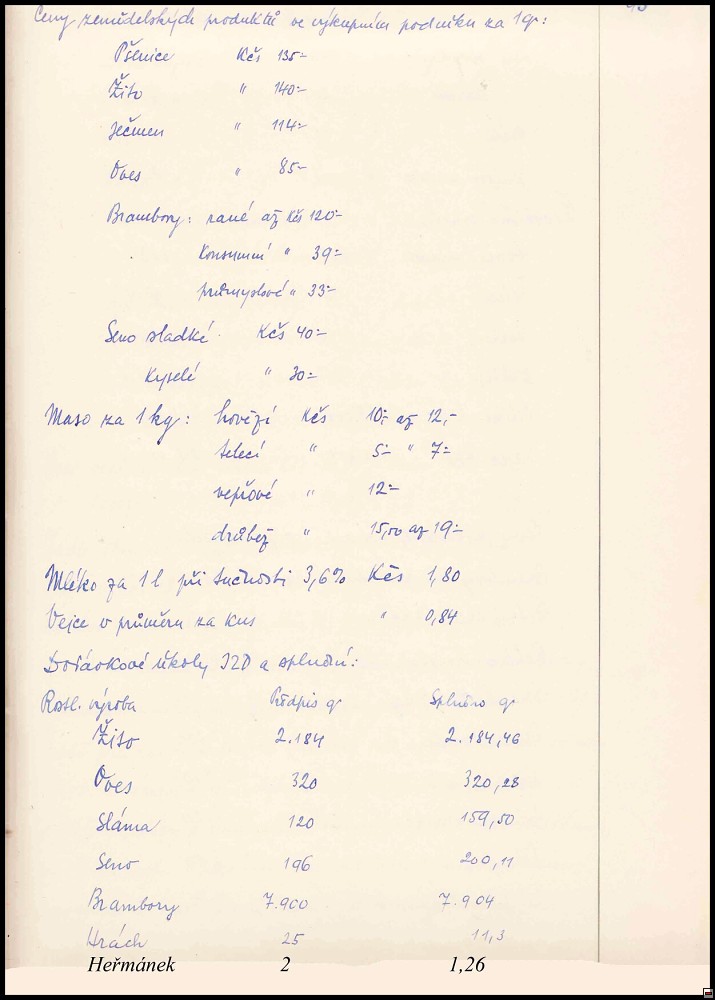 Ceny zemědelských produktů ve výkupním podniku za 1 q:
Pšenice Kčs 135.-
Žito " 140.-
Ječmen " 114.-
Oves " 85.-
Brambory: rané až Kčs 120.-
Konsumní " 39.-
průmyslové " 33.-
Seno sladké Kčs 40.-
Kyselé " 30.-
Maso za 1 kg: hovězí Kčs 10.- až 12,-
telecí " 5.- " 7.-
vepřové " 12.-
drůbež " 15,50 až 19.-
Mléko za 1 l při tučnosti 3,6% Kčs 1,80
Vejce v průměru za kus " 0,84
Dodávkové úkoly JZD a splnění:
Rostl. výroba Předpis q Splněno q
Žito 2.184 2.184,46
Oves 320 320,28
Sláma 120 159,50
Seno 196 200,11
Brambory 7.900 7.904
Hrách 25 11,3
Heřmánek 2 1,26